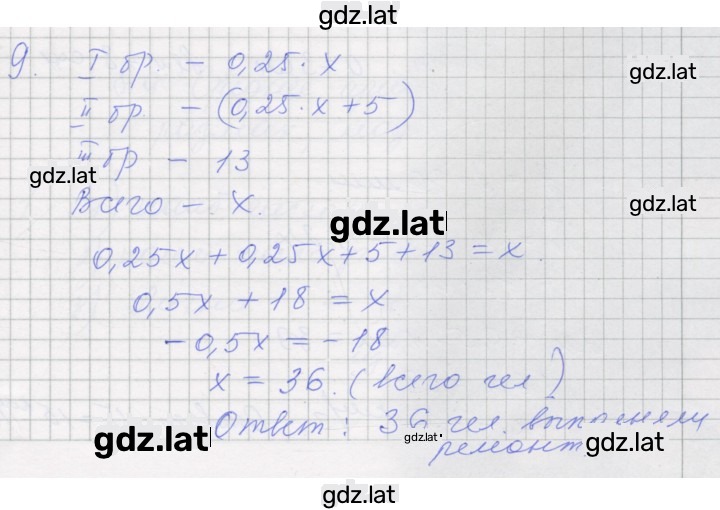 gdz.lat
9. I бр. - 0,25·x
gdz.lat
II бр - (0,25·x+5)
III бр - 13
gdz.lat
Всего - x.
gdz.lat
gdz.lat
0,25x+0,25x+5+13=x.
0,5x+18=x
-0,5x=-18
x=36. (всего чел)
Ответ: 36 чел. выполняли
gdz.lat
gdz.lat
ремонт.
gdz.lat
gdz.lat